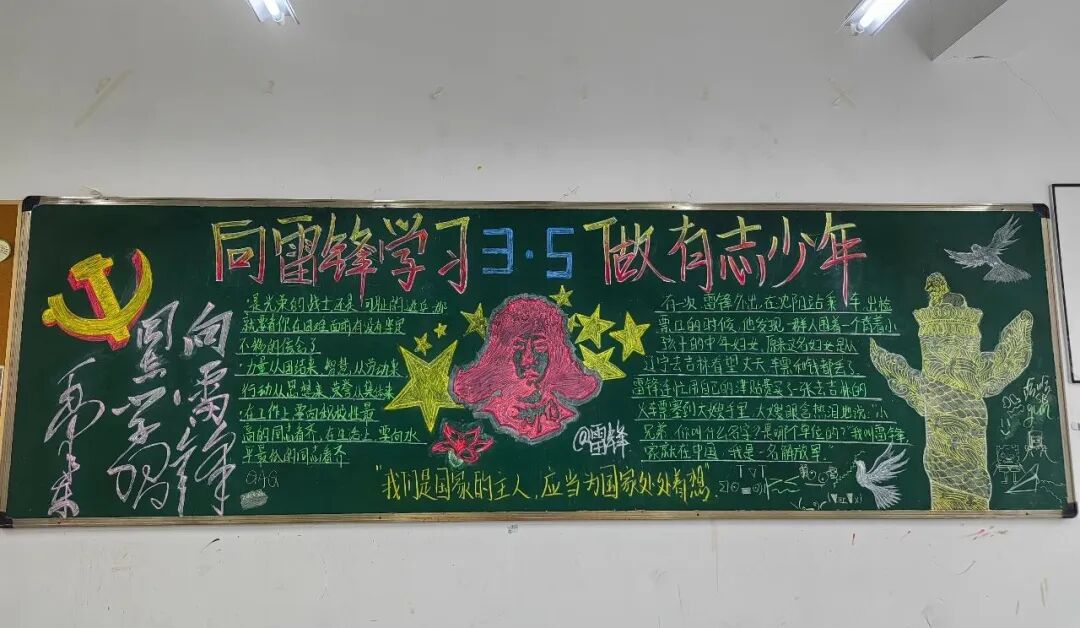 向雷锋学习 3·5 做有志少年
向雷锋
同志学习
毛泽东
是光荣的战士还是可耻的逃兵 那
就要看你在困难面前有没有坚定
不移的信念了
力量从团结来 智慧从劳动来
行动从思想来 荣誉从集体来
在工作上 要向积极性最
高的同志看齐,在生活上 要向水
平最低的同志看齐
@雷锋
"我们是国家的主人,应当为国家处处着想"
有一次,雷锋外出在沈阳站乘 车,出检
票口的时候,他发现一群人围着一个背着小
孩子的中年妇女,原来这名妇女是从
辽宁去吉林看望丈夫,车票和钱都丢了
雷锋连忙用自己的津贴费买了一张去吉林的
火车票塞到大嫂手里,大嫂眼含热泪地说:"小
兄弟,你叫什么名字?是哪个单位的?"我叫雷锋
家就在中国,我是一名解放军"